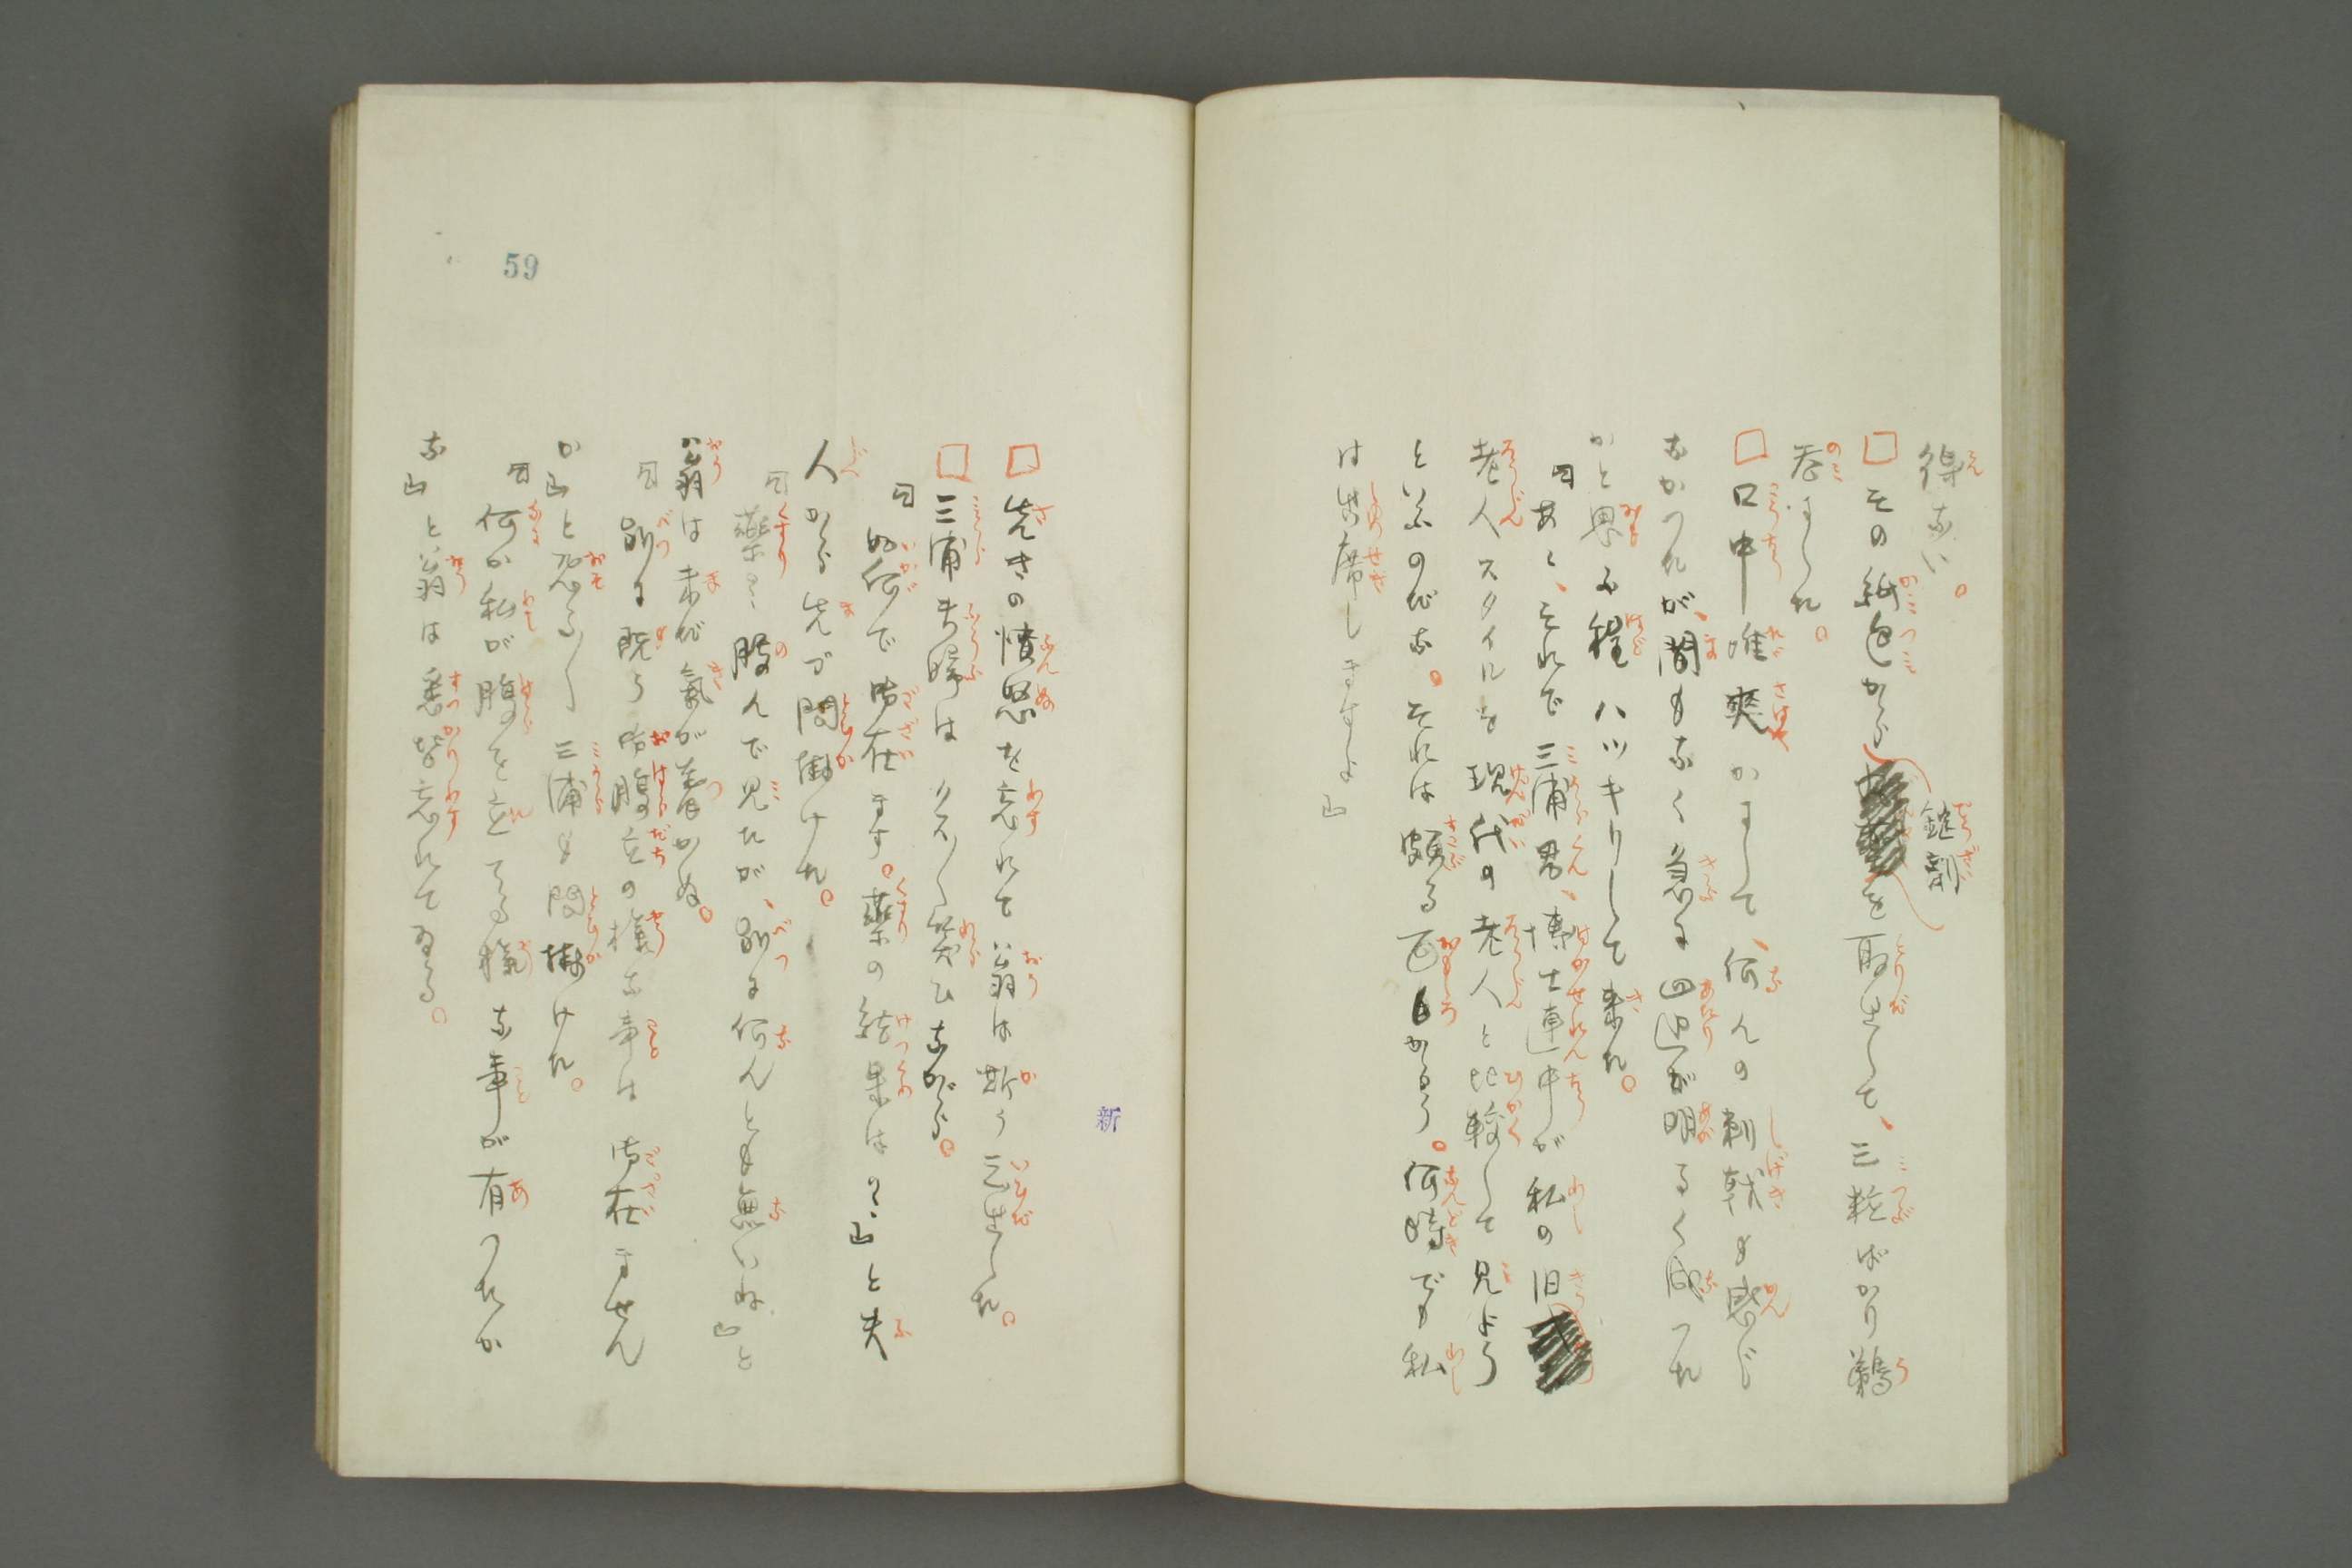 得ない。
□その紙包から錠剤を取出して、三粒ばかり鵜
呑ました。
□口中唯爽かまして、何んの刺戟も感じ
なかつたが、間もなく急に四辺が明るく成つた
かと思ふ程ハツキりして来た。
『あゝ、それで三浦君、博士連中が私の旧
老人スタイルを現代の老人と比較して見よう
といふのだな。それは頗る面白からう。何時でも私
は出席しますよ』
新
□先きの憤怒を忘れて翁は斯う云出した。
□三浦夫婦はクスクス笑ひながら。
『如何で御在ます。薬の結果は？』と夫
人から先づ問掛けた。
『薬？服んで見たが、別に何んとも無いね』と
翁は未だ氣が着かぬ。
『別に既う御腹立の様な事は御在ません
か』と恐る〳〵三浦も問掛けた。
『何か私が腹を立てる様な事が有つたか
な』と翁は悉皆忘れてゐる。
59